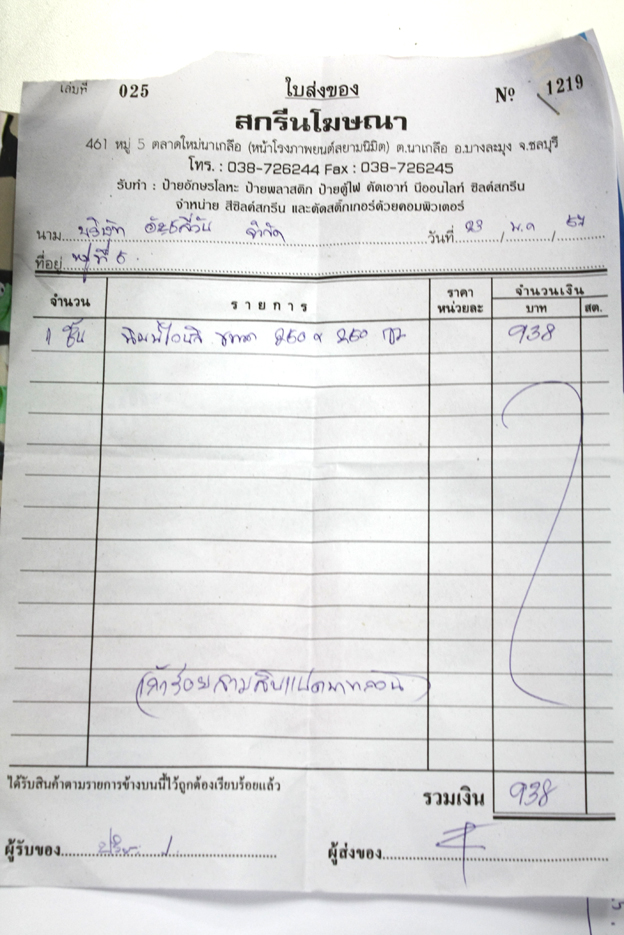 เล่มที่ 025 ใบส่งของ Nº 1219
สกรีนโฆษณา
461 หมู่ 5 ตลาดใหม่นาเกลือ (หน้าโรงภาพยนต์สยามนิมิต) ต.นาเกลือ อ.บางละมุง จ.ชลบุรี
โทร. : 038-726244 Fax : 038-726245
รับทำ : ป้ายอักษรโลหะ ป้ายพลาสติก ป้ายตู้ไฟ คัตเอาท์ นีออนไลท์ ซิลค์สกรีน
จำหน่าย สีซิลค์สกรีน และตัดสติ๊กเกอร์ด้วยคอมพิวเตอร์
นาม บริษัท จำกัด วันที่ 23 / พ.ค / 57
ที่อยู่ หมู่ที่ 5
จำนวน รายการ ราคา หน่วยละ จำนวนเงิน บาท สต.
1 ชิ้น ขนาด 250 x 250 ซม 938
(เก้าร้อยสามสิบแปดบาทถ้วน)
ได้รับสินค้าตามรายการข้างบนนี้ไว้ถูกต้องเรียบร้อยแล้ว
รวมเงิน 938
ผู้รับของ ผู้ส่งของ